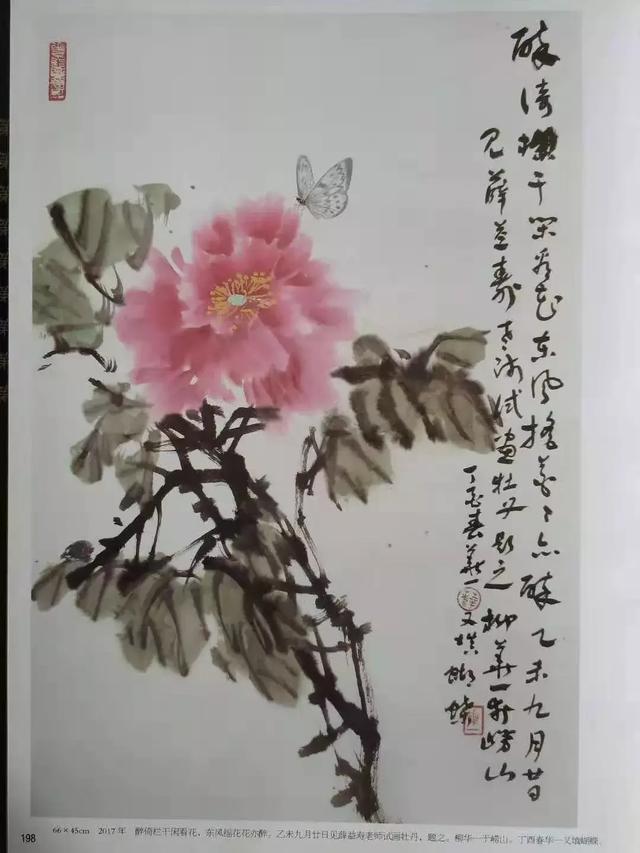 醉倚栏干闲看花东风摇花花亦醉乙未九月廿日
见薛益寿老师试画牡丹题之柳华一于崂山
丁酉春华一又填蝴蝶
198
66×45cm 2017年 醉倚栏干闲看花，东风摇花花亦醉。乙未九月廿日见薛益寿老师试画牡丹，题之。柳华一于崂山。丁酉春华一又填蝴蝶。